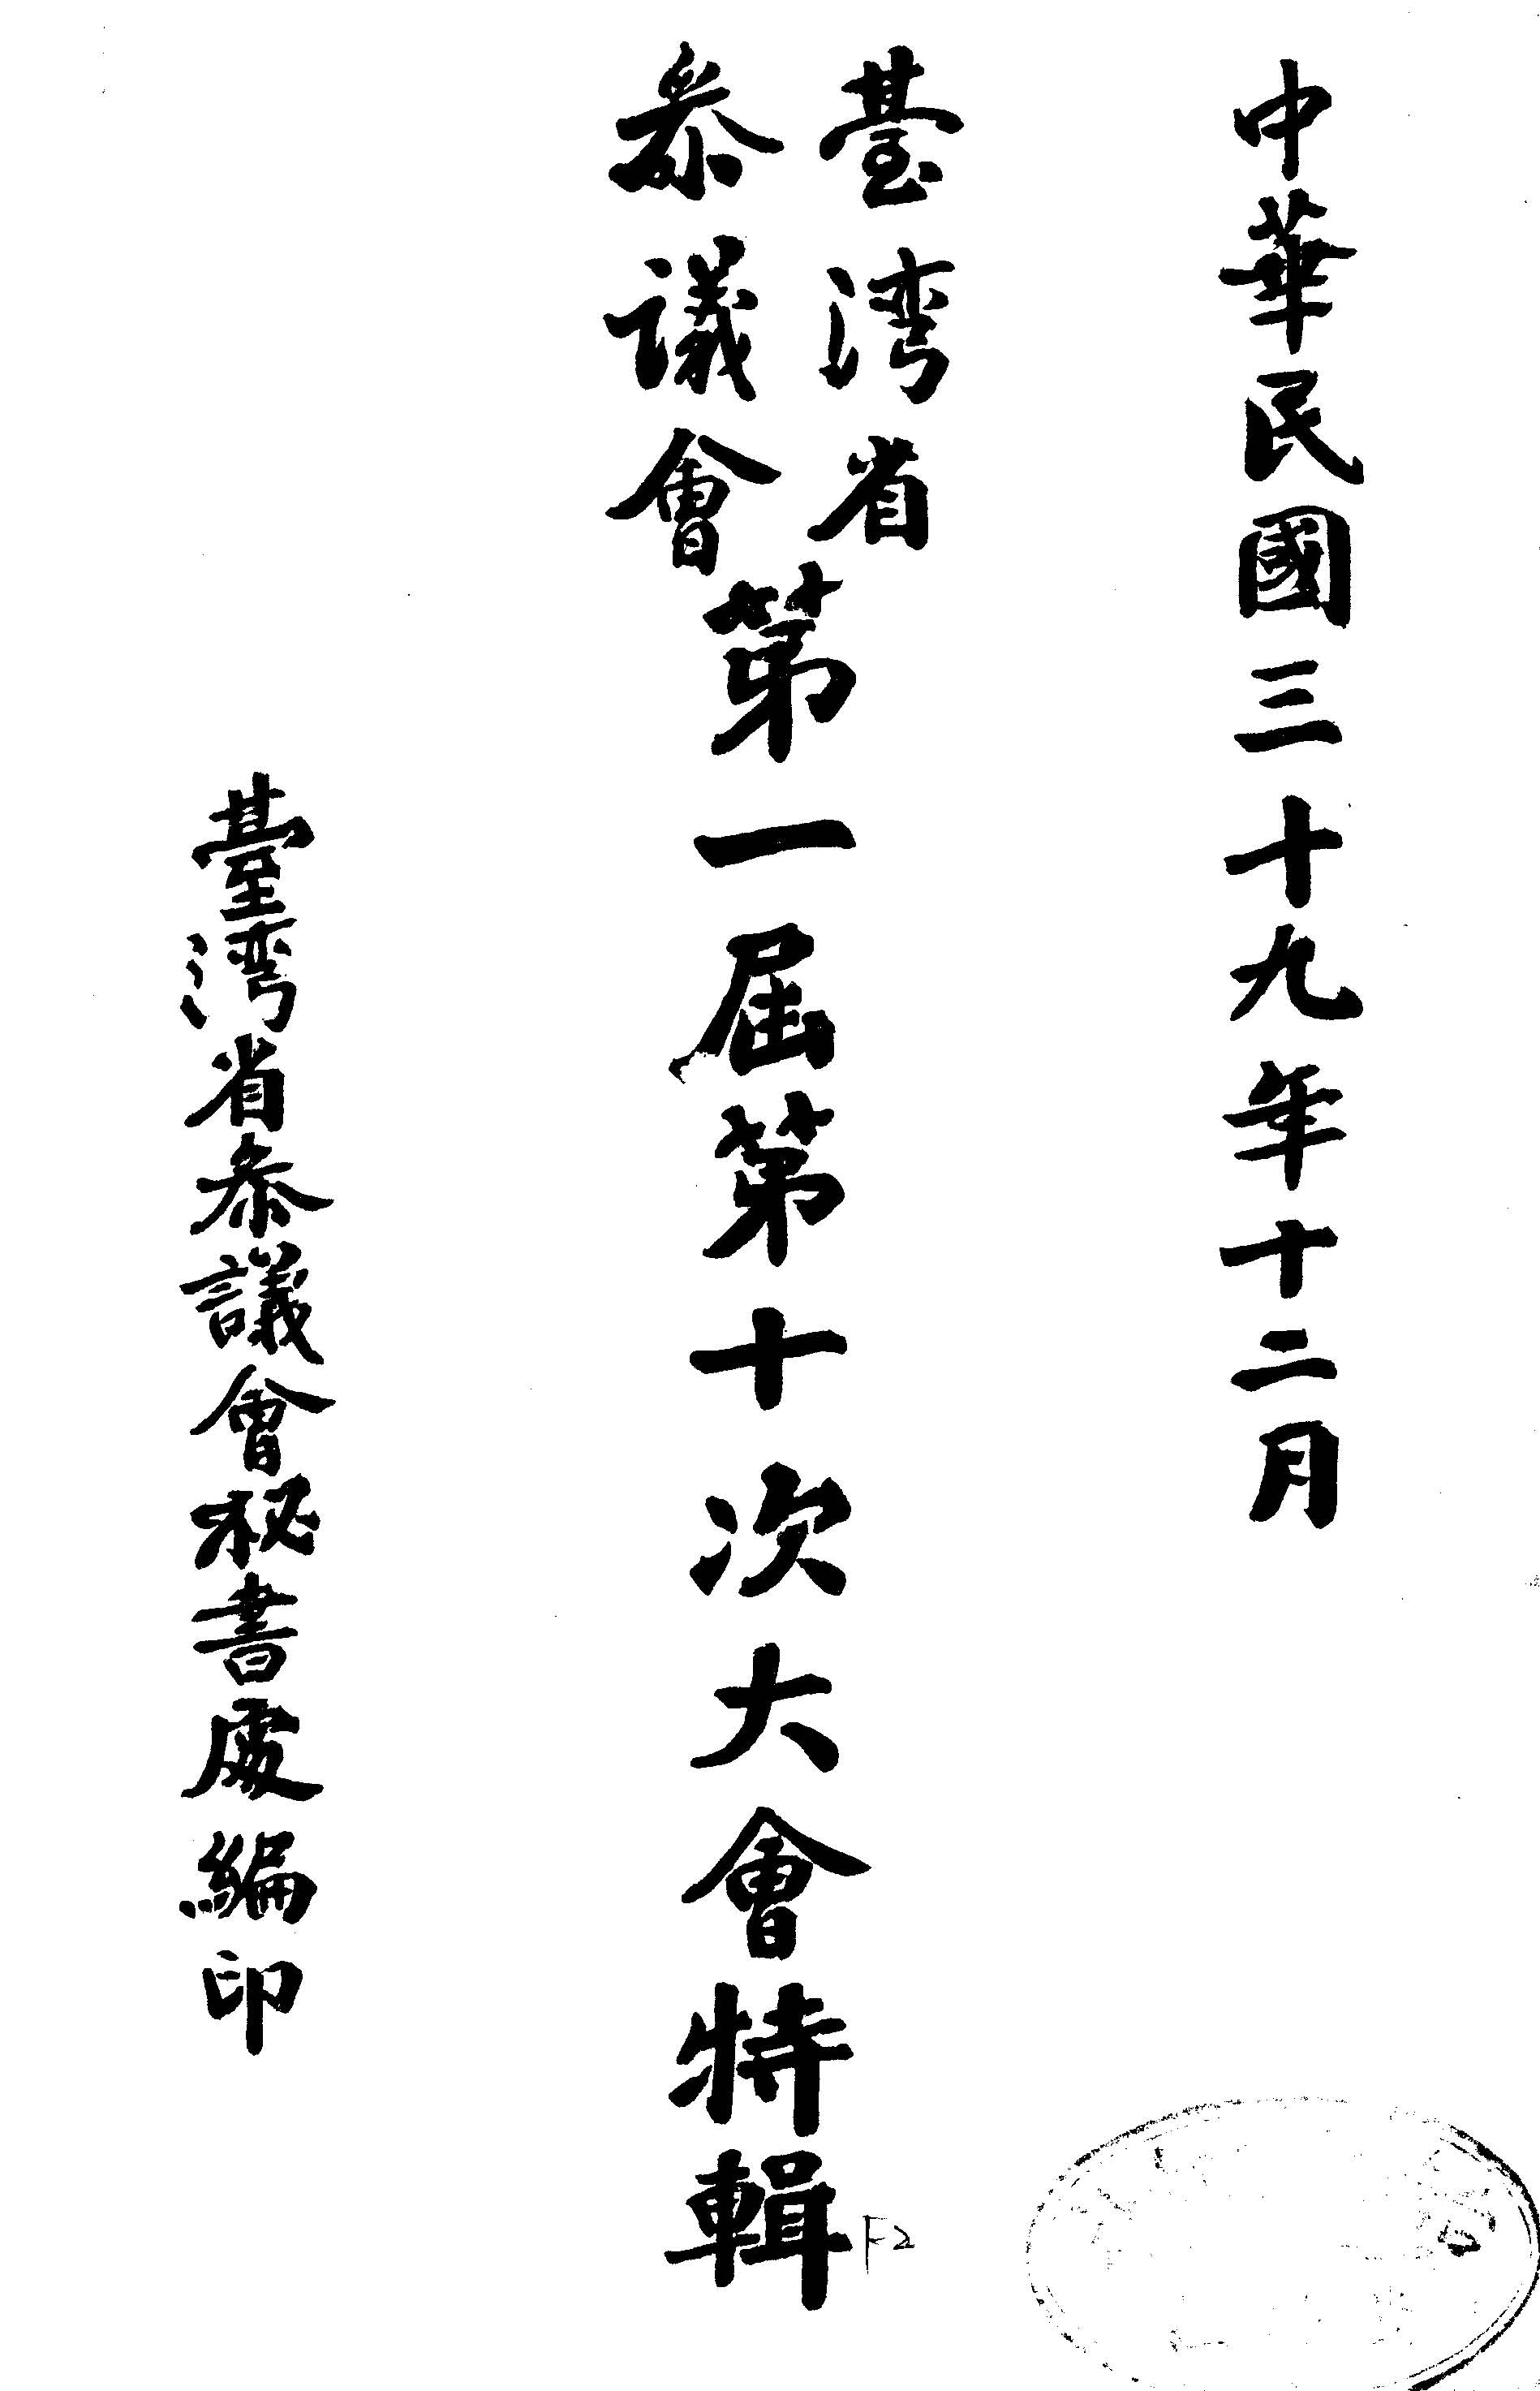 中華民國三十九年十二月
臺湾省
参議會
第一屆第十次大會特輯
F2
臺湾省参議會秘書處編印